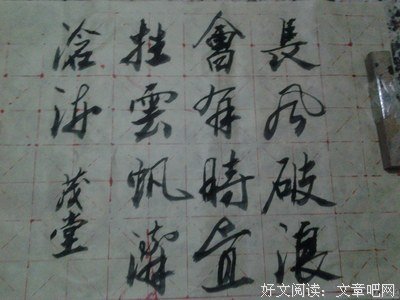 長风破浪
會有時直
挂雲帆濟
滄海
茂堂
好文阅读：文章吧网